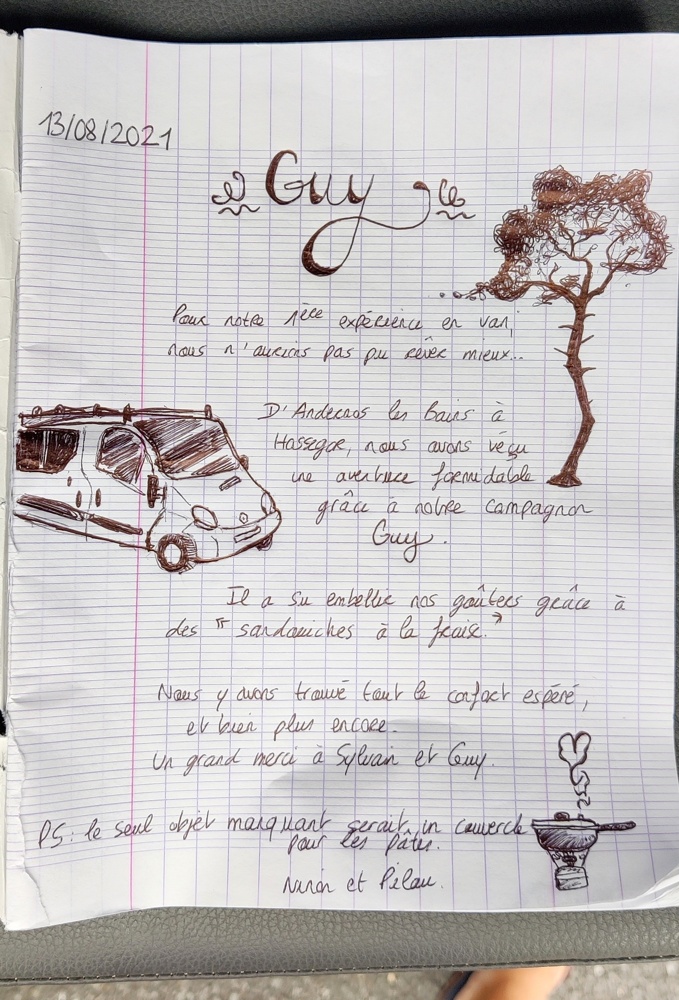 13/08/2021
Guy
Pour notre 1ère expérience en van,
nous n'aurions pas pu rêver mieux...
D'Andernos les bains à
Hossegor, nous avons vécu
une aventure formidable
grâce à notre compagnon
Guy.
Il a su embellir nos goûters grâce à
des "sandwiches à la fraise."
Nous y avons trouvé tout le confort espéré,
et bien plus encore.
Un grand merci à Sylvain et Guy.
PS: le seul objet manquant serait un couvercle
pour les pâtes.
et Pilou.